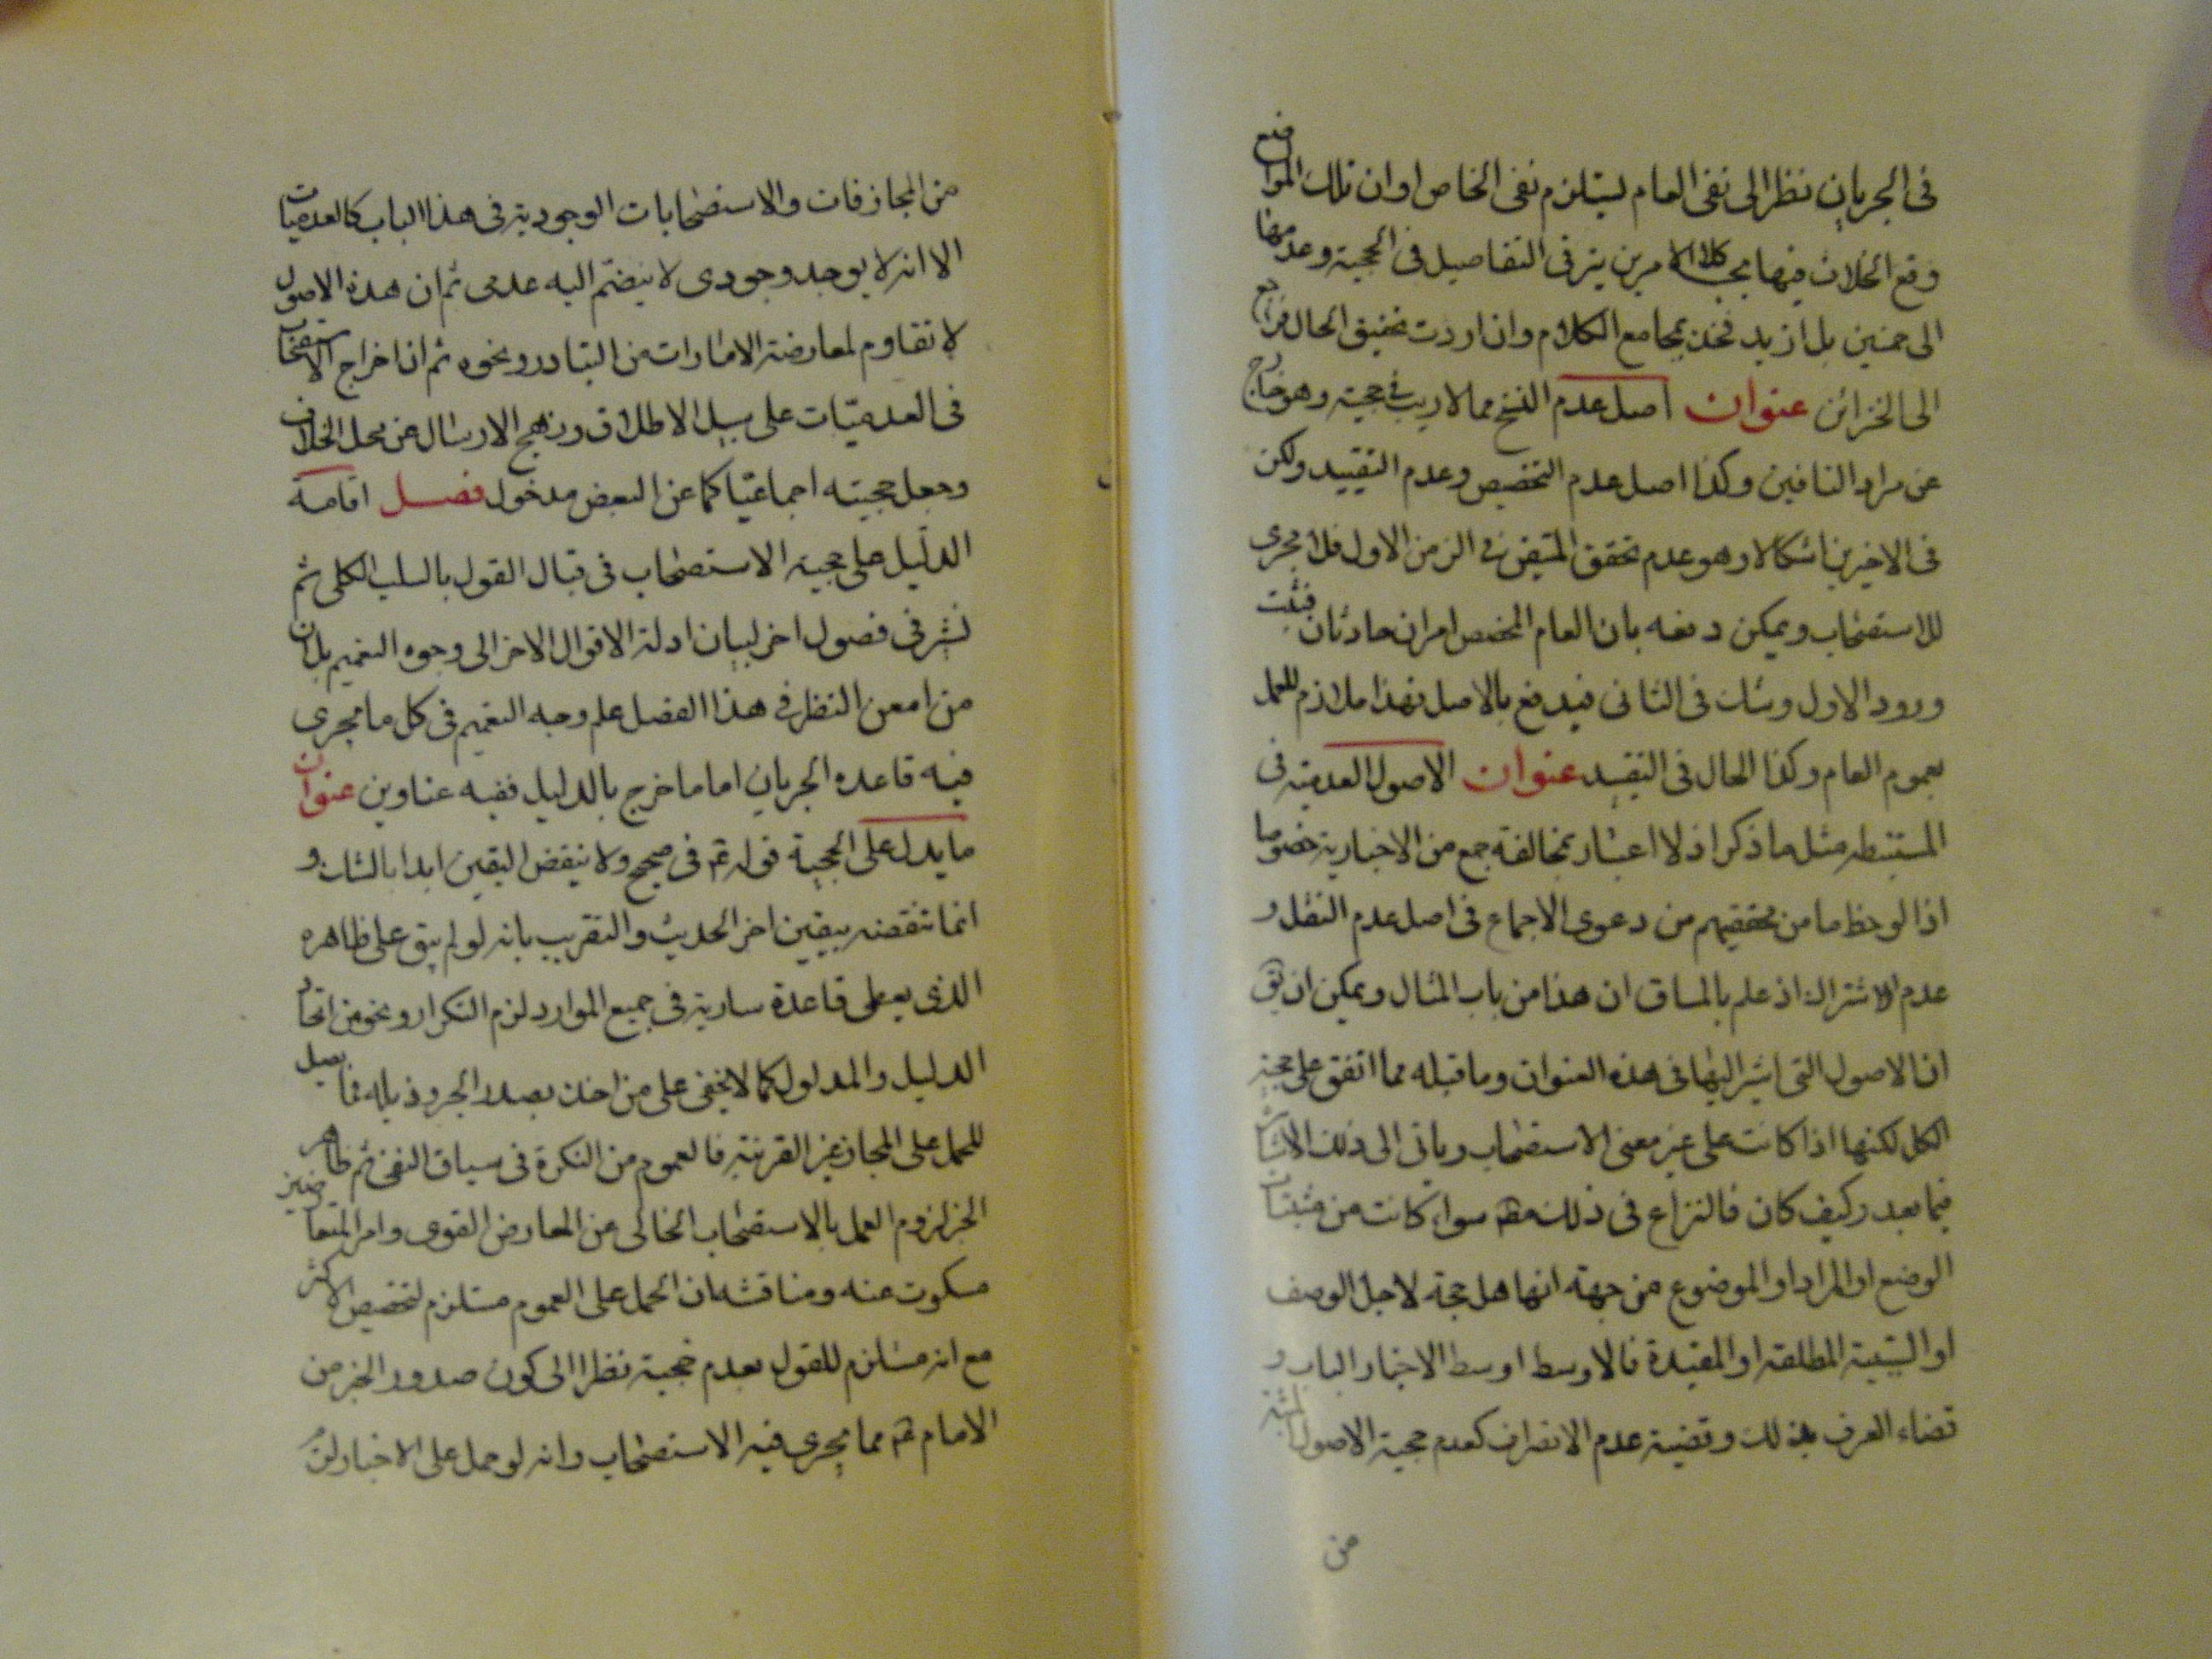 فى الجريان نظرا الى نفى العام يستلزم نفى الخاص او ان تلك المواضع
وقع الخلاف فيها بكلا الامرين يترقى التفاصيل فى الحجية وعدمها
الى خمسين بل ازيد فخذ بمجامع الكلام وان اردت تحقيق الحال فراجع
الى الخزائن عنوان اصل عدم النسخ مما لا ريب فى حجيته وهو خارج
عن مراد النافين وكذا اصل عدم التخصيص وعدم التقييد ولكن
فى الاخيرين اشكالا وهو عدم تحقق المتيقن فى الزمن الاول فلا مجرى
للاستصحاب ويمكن دفعه بان العام المخصص امران حادثان فثبت
ورود الاول وشك فى الثانى فيدفع بالاصل فهذا ملازم للعمل
بعموم العام وكذا الحال فى التقييد عنوان الاصول العدمية فى
المستنبطه مثل ما ذكر اذ لا اعتبار بمخالفة جمع من الاخبارية خصوصا
اذا لوحظ ما من محققيهم من دعوى الاجماع فى اصل عدم النقل و
عدم الاشتراك اذ علم بالمساق ان هذا من باب المثال ويمكن ان يق
ان الاصول التى اشير اليها فى هذه العنوان وما قبله مما اتفق على حجية
الكل لكنها اذا كانت على غير معنى الاستصحاب وياتى الى ذلك الاشارة
فيما بعد وكيف كان فالنزاع فى ذلك سواء كانت من مثبتات
الوضع او المراد او الموضوع من جهة انها هل حجة لاجل الوصف
او السببية المطلقة او المقيدة فالاوسط اوسط لاخبار الباب و
قضاء العرف بذلك وقضية عدم الانصراف كعدم حجية الاصول المثبتة
من
من المجازفات والاستصحابات الوجودية فى هذا الباب كالعدميات
الا انه لا يوجد وجودى لا ينضم اليه عدمى ثم ان هذه الاصول
لا تقاوم لمعارضة الامارات من التبادر ونحوه ثم ان اخراج الاستصحاب
فى العدميات على سبيل الاطلاق ونهج الارسال عن محل الخلاف
وجعل حجيته اجماعيا كما عن البعض مدخول فصل اقامة
الدليل على حجية الاستصحاب فى قبال القول بالسلب الكلى ثم
نشير فى فصول اخر لبيان ادلة الاقوال الاخر الى وجوه التعميم بل ان
من امعن النظر فى هذا الفصل علم وجه التعميم فى كل ما يجرى
فيه قاعدة الجريان اما ما خرج بالدليل ففيه عناوين عنوان
ما يدل على الحجية قوله ع فى صحيح ولا ينقض اليقين ابدا بالشك و
انما تنقضه بيقين اخر الحديث والتقريب بانه لو لم يبق على ظاهره
الذى يعطى قاعدة سارية فى جميع الموارد لزم التكرار ونحو من اتحاد
الدليل والمدلول كما لا يخفى على من اخذ بصدر الخبر وذيله فما يصل
للحمل على المجاز غير القرينة فالعموم من النكرة فى سياق النفى ثم ظاهر
الخبر لزوم العمل بالاستصحاب الخالى عن المعارض القوى وامر المتعارضين
مسكوت عنه ومناقشة ان الحمل على العموم مستلزم لتخصيص الاكثر
مع انه مستلزم للقول بعدم حجية نظرا الى كون صدور الخبر من
الامام ع مما يجرى فيه الاستصحاب وانه لو حمل على الاخبار لزم